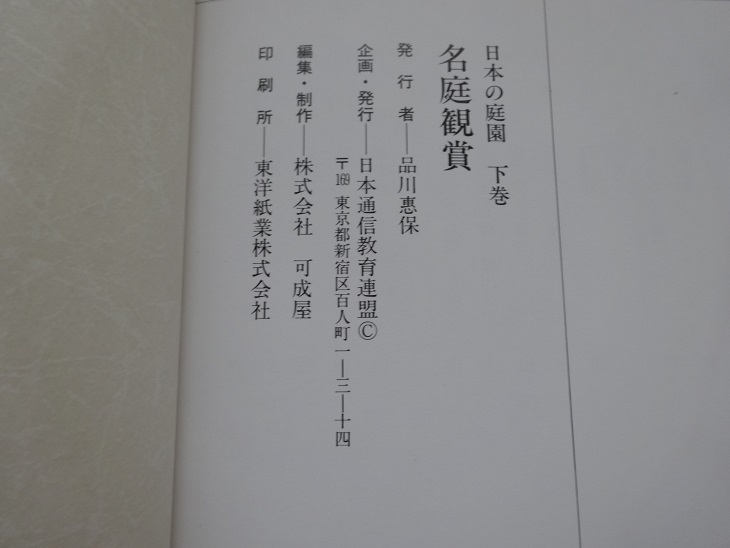 日本の庭園　下巻
名庭観賞
発行者―品川惠保
企画・発行―日本通信教育連盟Ⓒ
〒169 東京都新宿区百人町一―三―十四
編集・制作―株式会社　可成屋
印刷所―東洋紙業株式会社